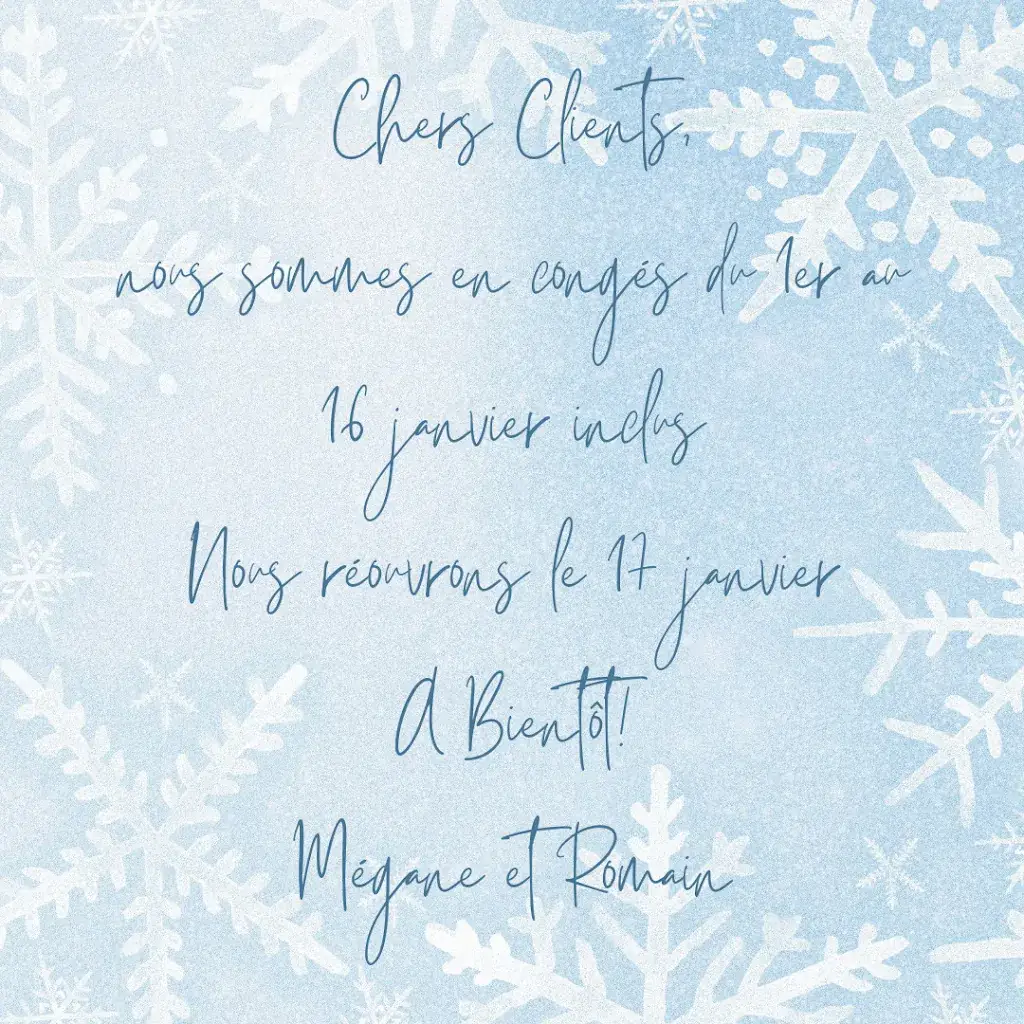 Chers Clients,
nous sommes en congés du 1er au
16 janvier inclus
Nous réouvrons le 17 janvier
A Bientôt!
Mégane et Romain